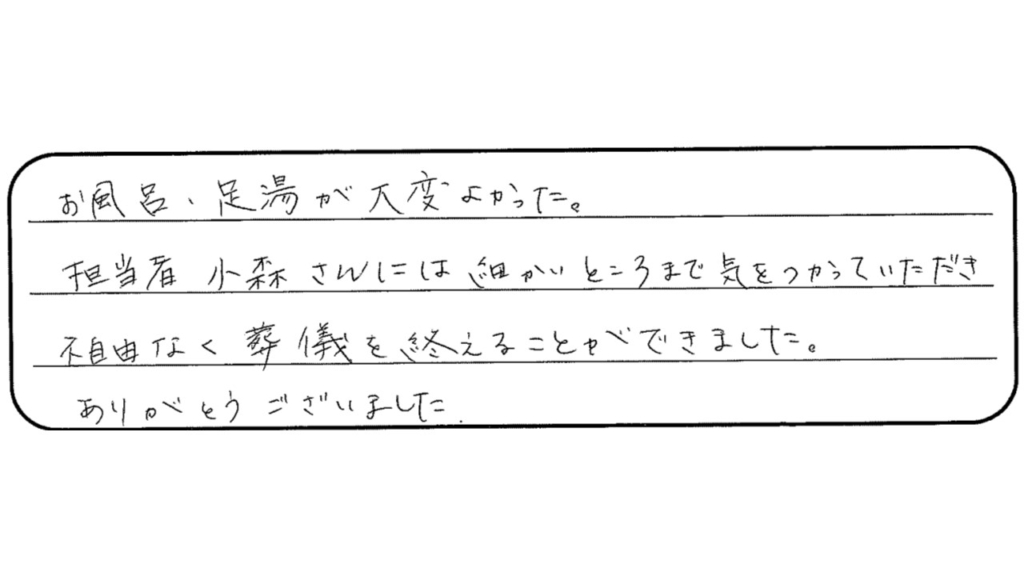 お風呂、足湯が大変よかった。
担当者 小森さんには細かいところまで気をつかっていただき
不自由なく葬儀を終えることができました。
ありがとうございました.